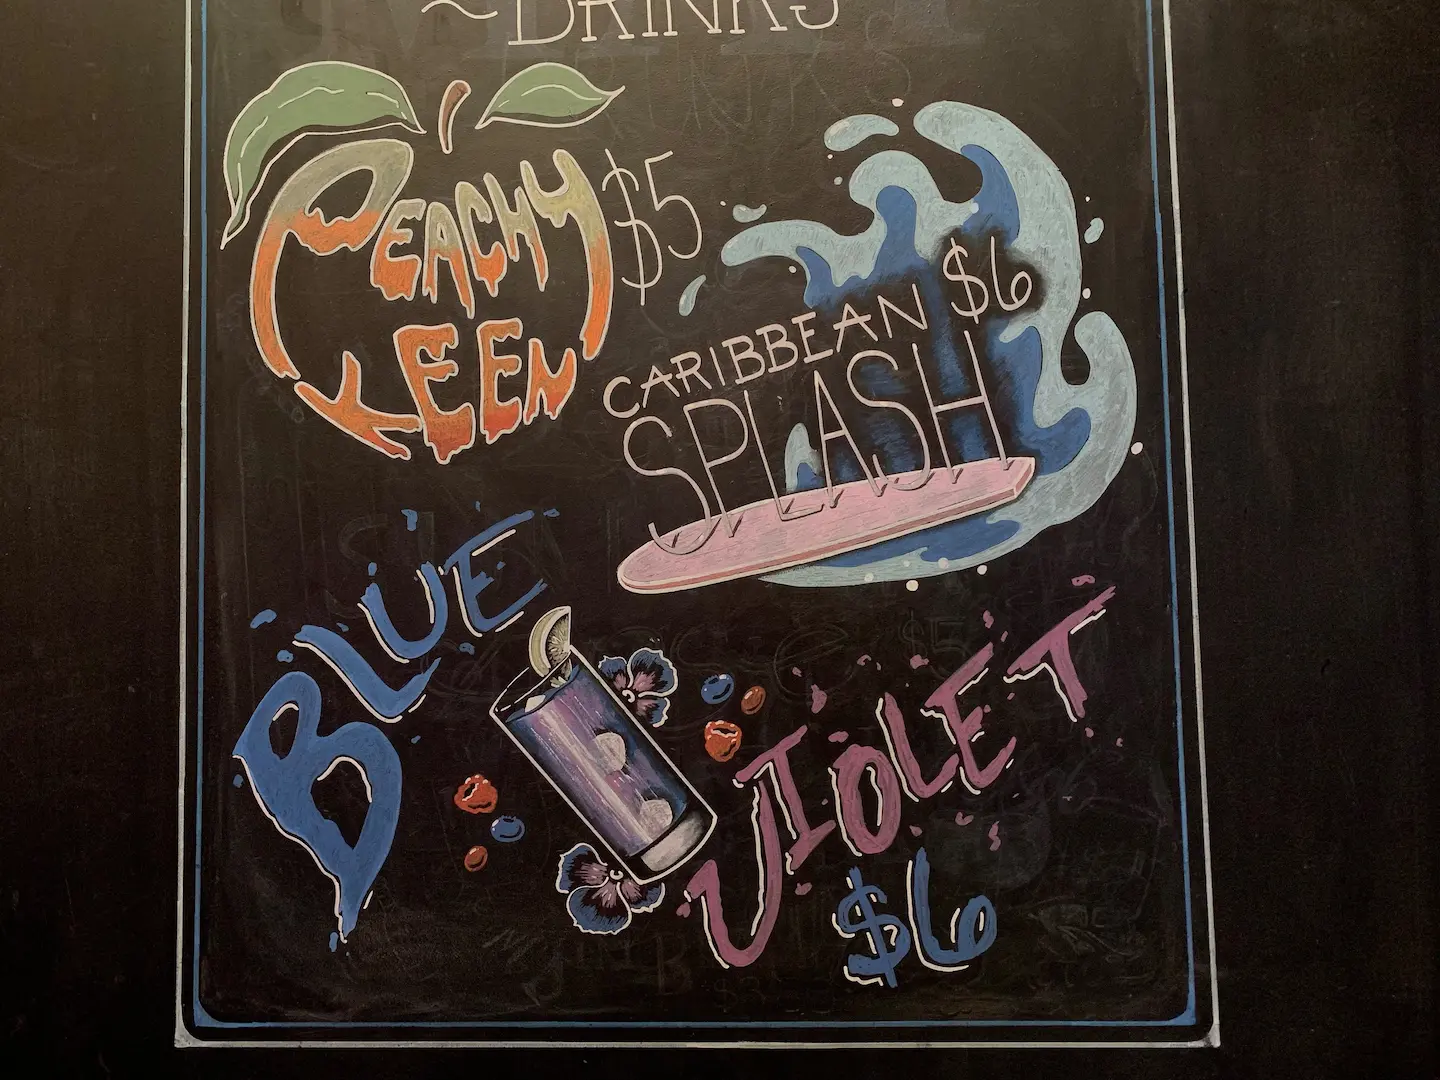 ~DRINKS
PEACHY
KEEN
$5
CARIBBEAN $6
SPLASH
BLUE
VIOLET
$6